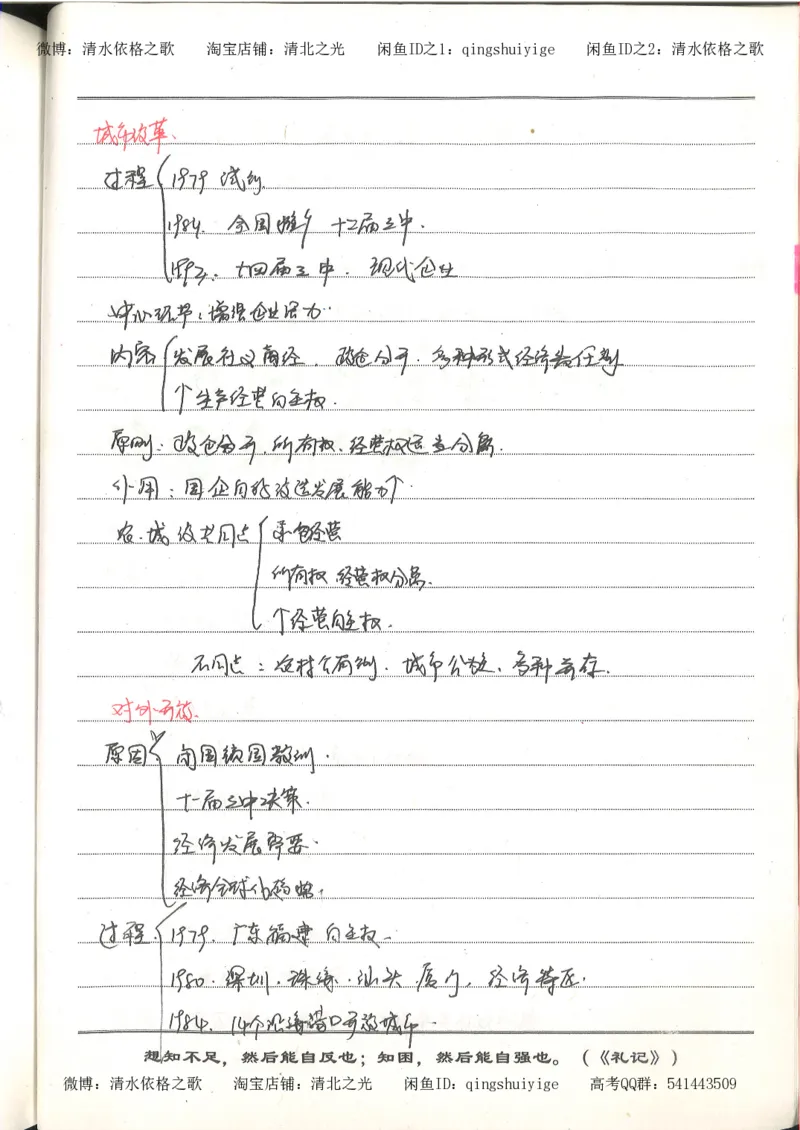 微博：清水依格之歌 淘宝店铺：清北之光 闲鱼ID之1：qingshuiyige 闲鱼ID之2：清水依格之歌
城市改革、
过程 1979 试点.
1984. 全国推广 十二届三中.
十四届三中. 现代企业
中心环节：增强企业活力.
内容 发展社义商经. 政企分开. 多种形式经济责任制
个 生产经营自主权.
原则：政企分开. 所有权、经营权适当分离.
作用：国企自我改造发展能力个.
农. 城 改共同点 承包经营
所有权、经营权分离.
个经营自主权.
不同点：农村公有制. 城市公, 多种并存.
对外开放.
原因 闭国锁国教训.
十一届三中决策.
经济发展需要.
经济全球化
过程. 1979. 广东福建 自主权.
1980. 深圳. 珠海. 汕头 厦门, 经济特区.
1984. 14个沿海港口开放城市.
想知不足，然后能自反也；知困，然后能自强也。（《礼记》）
微博：清水依格之歌 淘宝店铺：清北之光 闲鱼ID：qingshuiyige 高考QQ群：541443509